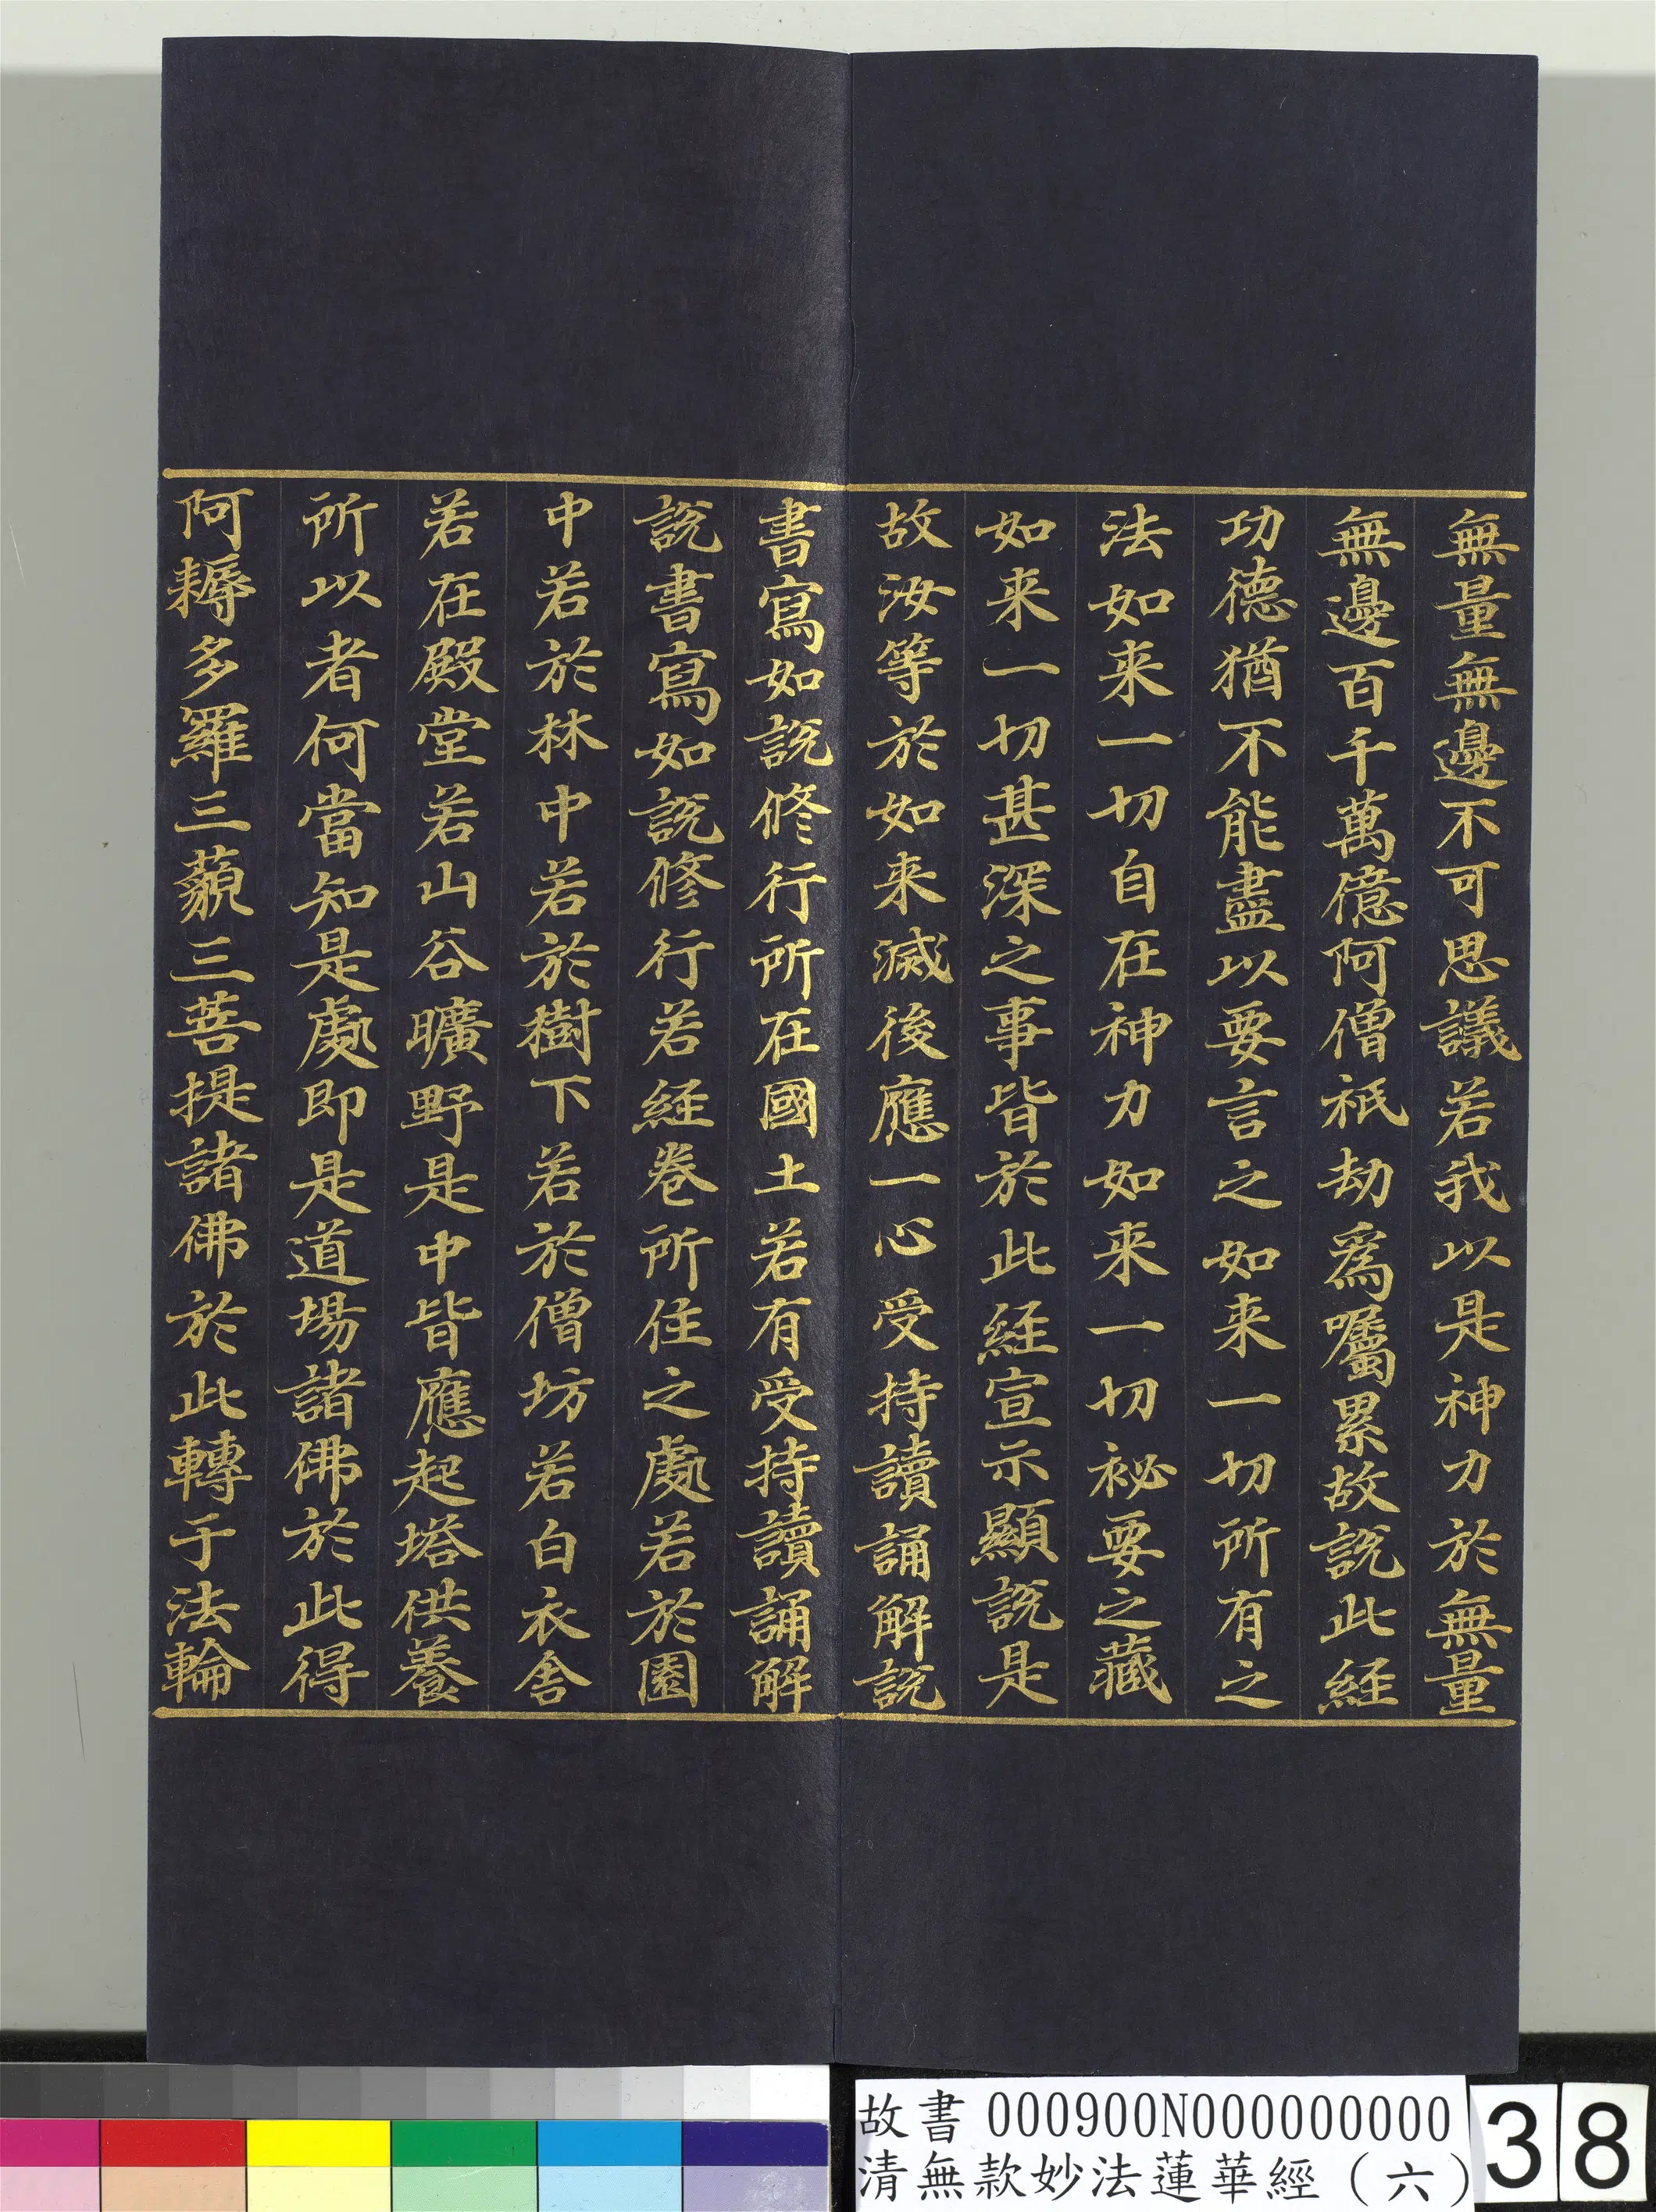 無量無邊不可思議若我以是神力於無量
無邊百千萬億阿僧祇劫爲囑累故説此經
功德猶不能盡以要言之如来一切所有之
法如来一切自在神力如来一切祕要之藏
如来一切甚深之事皆於此經宣示顯説是
故汝等於如来滅後應一心受持讀誦解説
書寫如説修行所在國土若有受持讀誦解
説書寫如説修行若經卷所住之處若於園
中若於林中若於樹下若於僧坊若白衣舍
若在殿堂若山谷曠野是中皆應起塔供養
所以者何當知是處即是道場諸佛於此得
阿耨多羅三藐三菩提諸佛於此轉于法輪
故書 000900N000000000
清無款妙法蓮華經（六）
38